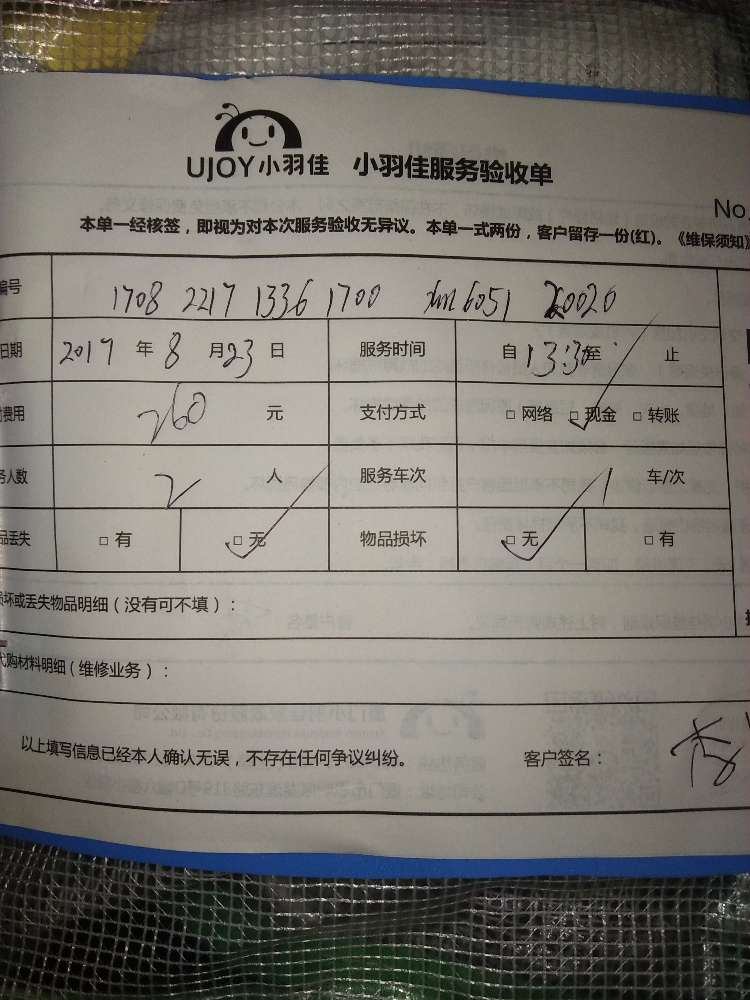 UJOY小羽佳 小羽佳服务验收单
No.
本单一经核签，即视为对本次服务验收无异议。本单一式两份，客户留存一份(红)。《维保须知》
编号 1708 2217 1336 1700 6051 20020
日期 2017 年 8 月 23 日 服务时间 自 13:30 至 止
费用 260 元 支付方式 □ 网络 □ 现金 □ 转账
务人数 2 人 服务车次 1 车/次
品丢失 □ 有 □ 无 物品损坏 □ 无 □ 有
损坏或丢失物品明细（没有可不填）：
代购材料明细（维修业务）：
以上填写信息已经本人确认无误，不存在任何争议纠纷。 客户签名：